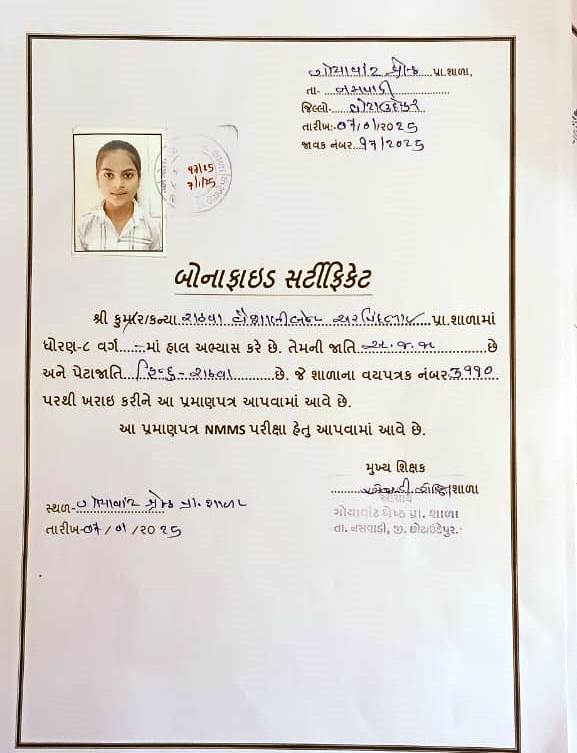 ગોયાવાંટ શ્રેષ્ઠ પ્રા.શાળા,
તા- નસવાડી
જિલ્લો- છોટાઉદેપુર
તારીખ:-૦૭/૦૧/૨૦૨૫
જાવક નંબર ૧૭/૨૦૨૫
૧૭/૨૫
૭/૧/૨૫
બોનાફાઇડ સર્ટીફિકેટ
શ્રી કુમાર/કન્યા રાઠવા અરવિંદભાઇ પ્રા.શાળામાં
ધોરણ-૮ વર્ગ -માં હાલ અભ્યાસ કરે છે. તેમની જાતિ અ.જ.જ છે
અને પેટાજાતિ હિન્દુ-રાઠવા છે. જે શાળાના વયપત્રક નંબર ૩૧૧૦
પરથી ખરાઇ કરીને આ પ્રમાણપત્ર આપવામાં આવે છે.
આ પ્રમાણપત્ર NMMS પરીક્ષા હેતુ આપવામાં આવે છે.
મુખ્ય શિક્ષક
શાળા
આચાર્ય
ગોયાવાંટ શ્રેષ્ઠ પ્રા. શાળા
તા. નસવાડી, જી. છોટાઉદેપુર.
સ્થળ- ગોયાવાંટ શ્રેષ્ઠ પ્રા.શાળા
તારીખ-૦૭/૦૧/૨૦૨૫